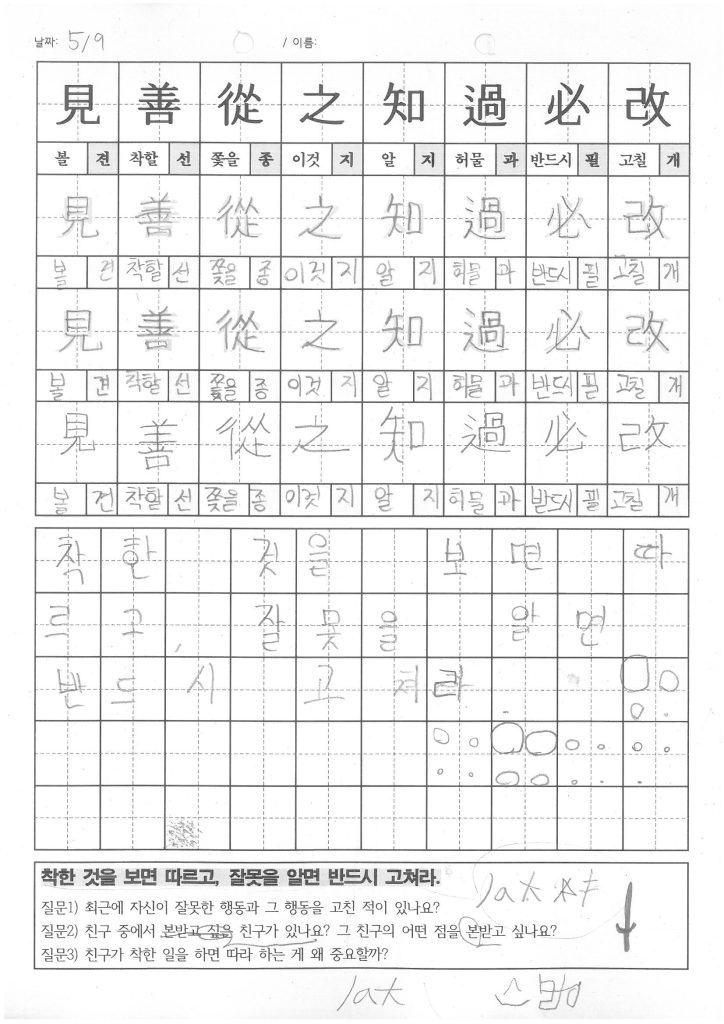 날짜: 5/9 / 이름:
見 善 從 之 知 過 必 改
볼 견 착할 선 쫓을 종 이것 지 알 지 허물 과 반드시 필 고칠 개
見 善 從 之 知 過 必 改
볼 견 착할 선 쫓을 종 이것 지 알 지 허물 과 반드시 필 고칠 개
見 善 從 之 知 過 必 改
볼 견 착할 선 쫓을 종 이것 지 알 지 허물 과 반드시 필 고칠 개
見 善 從 之 知 過 必 改
볼 견 착할 선 쫓을 종 이것 지 알 지 허물 과 반드시 필 고칠 개
착한 것을 보면 따
르고, 잘못을 알면
반드시 고쳐라
착한 것을 보면 따르고, 잘못을 알면 반드시 고쳐라.
질문1) 최근에 자신이 잘못한 행동과 그 행동을 고친 적이 있나요?
질문2) 친구 중에서 본받고 싶은 친구가 있나요? 그 친구의 어떤 점을 본받고 싶나요?
질문3) 친구가 착한 일을 하면 따라 하는 게 왜 중요할까?